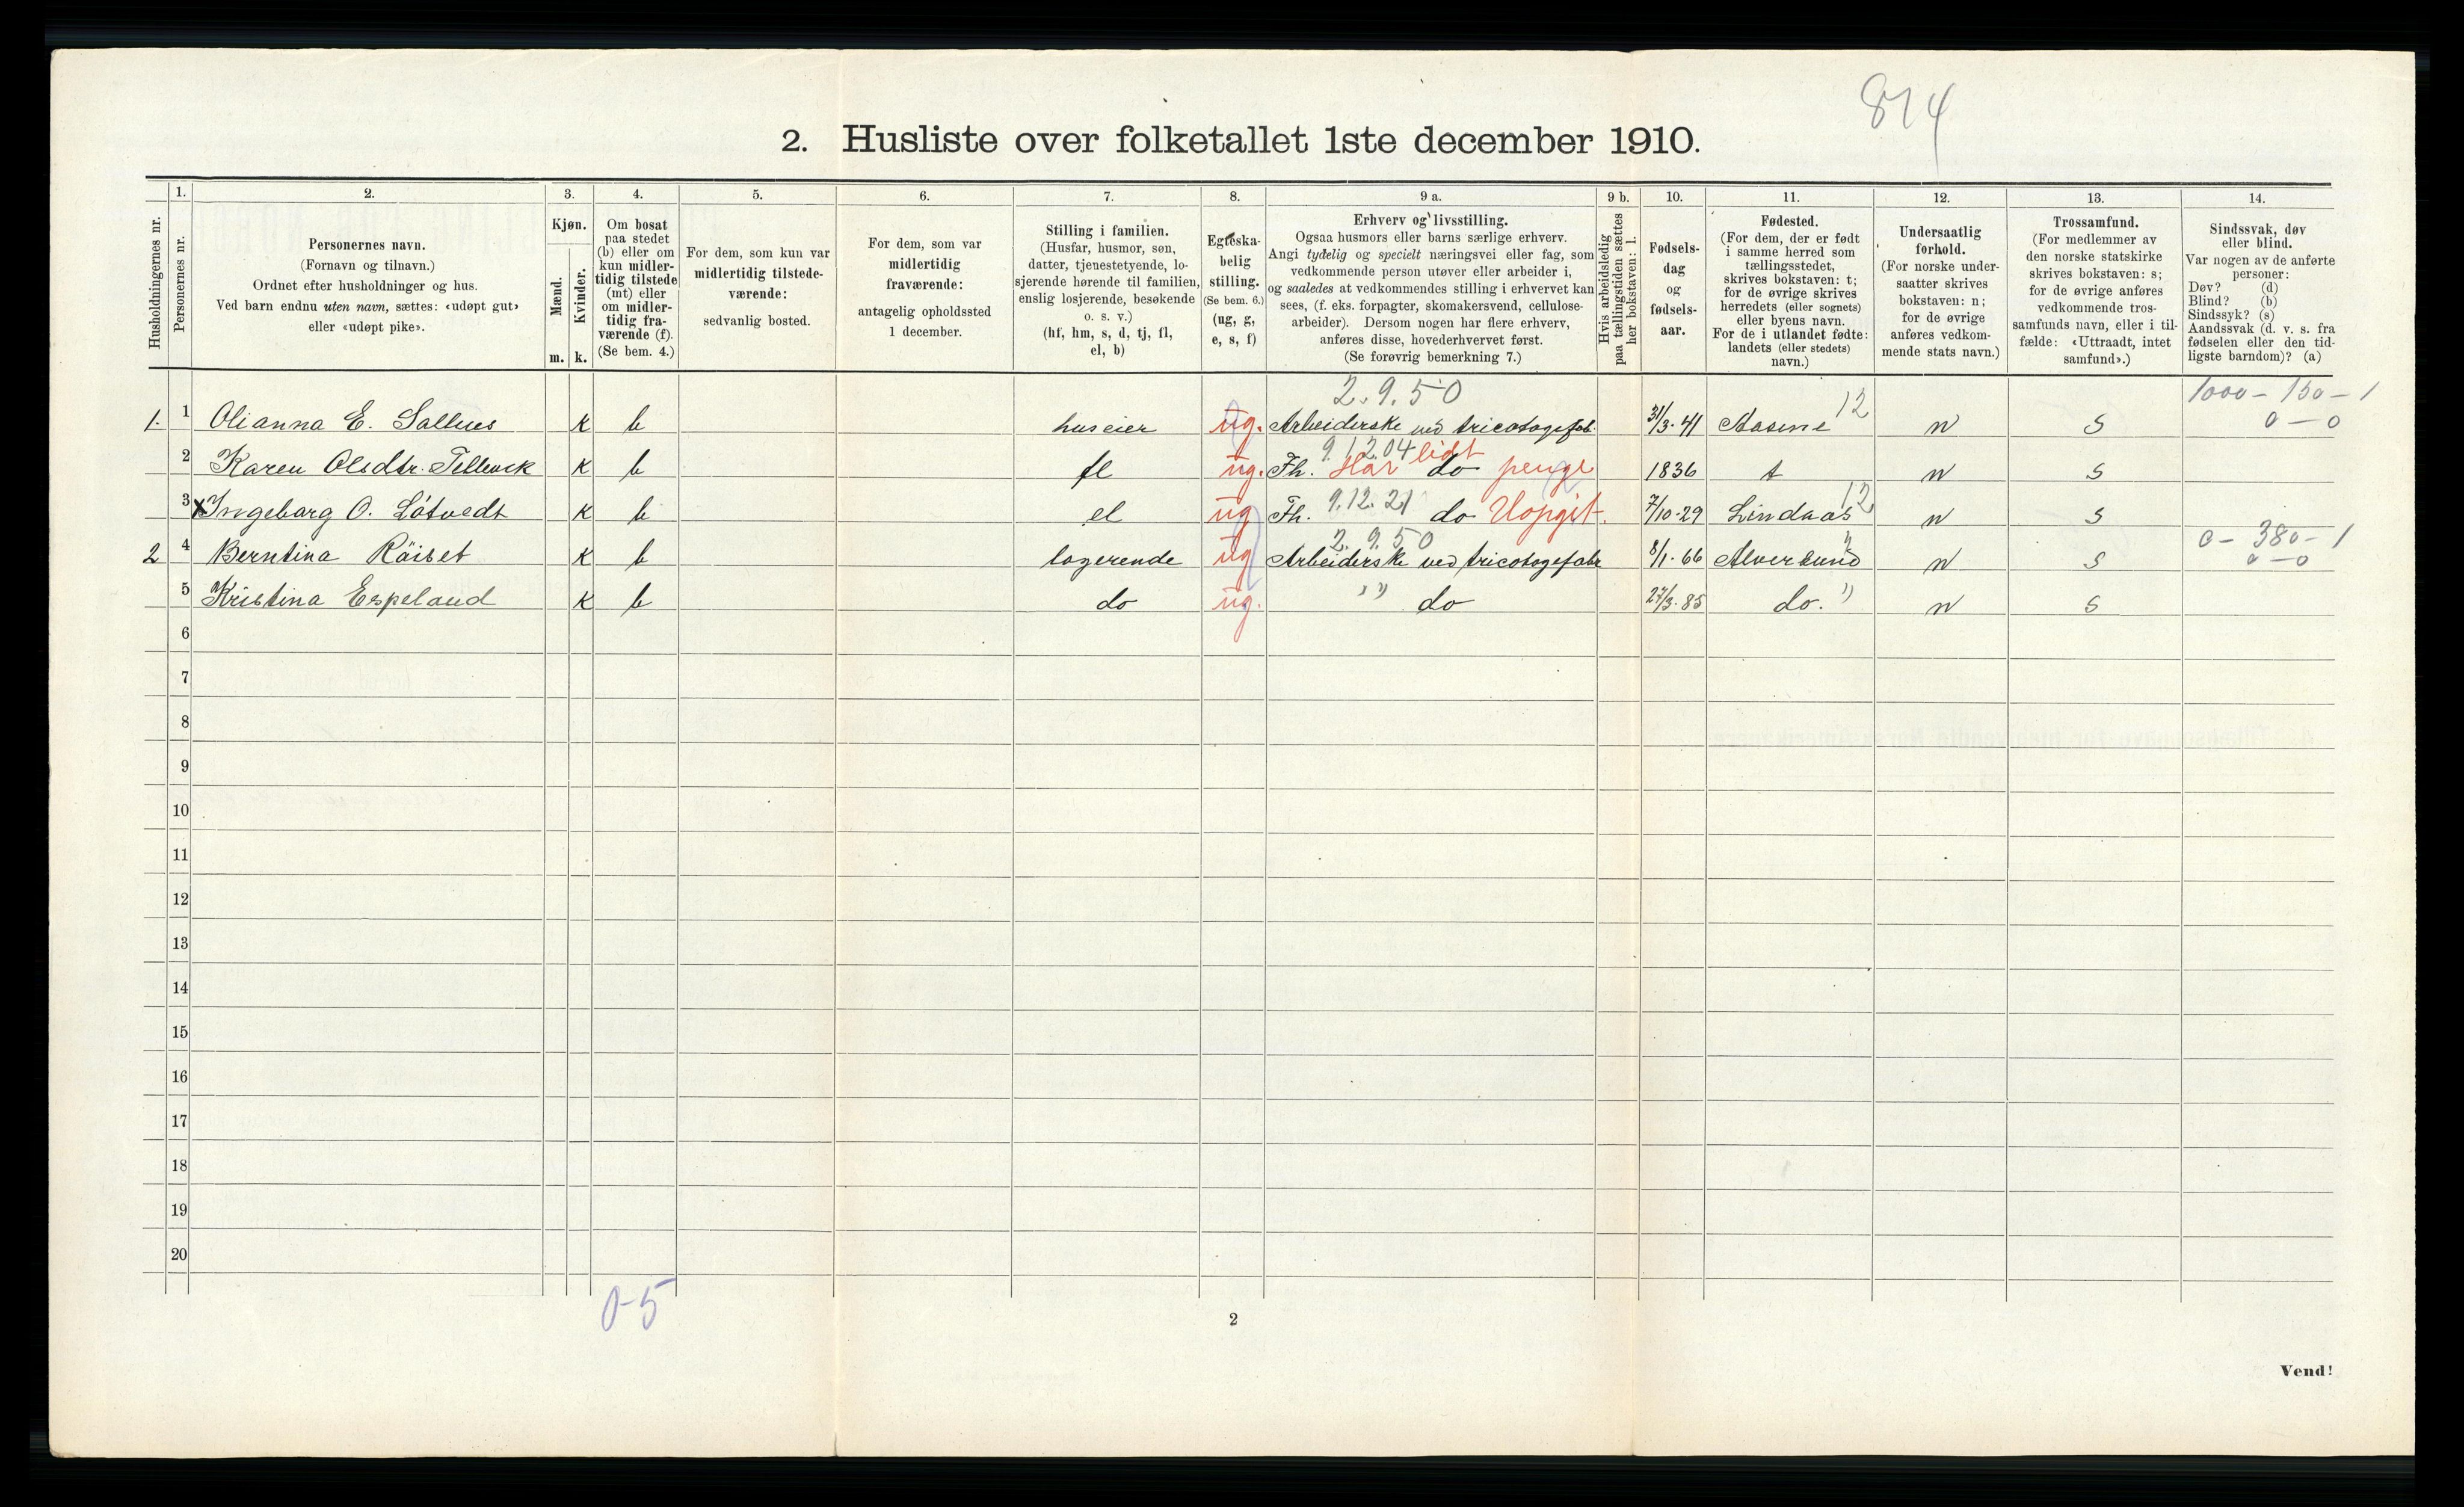 814
2. Husliste over folketallet 1ste december 1910.
Husholdningernes nr.
1.
Personernes nr.
2.
Personernes navn.
(Fornavn og tilnavn.)
Ordnet efter husholdninger og hus.
Ved barn endnu uten navn, sættes: «udøpt gut»
eller «udøpt pike».
3.
Kjøn.
Mænd.
Kvinder.
m. k.
4.
Om bosat
paa stedet
(b) eller om
kun midler-
tidig tilstede
(mt) eller
om midler-
tidig fra-
værende (f).
(Se bem. 4.)
5.
For dem, som kun var
midlertidig tilstede-
værende:
sedvanlig bosted.
6.
For dem, som var
midlertidig
fraværende:
antagelig opholdssted
1 december.
7.
Stilling i familien.
(Husfar, husmor, søn,
datter, tjenestetyende, lo-
sjerende hørende til familien,
enslig losjerende, besøkende
o. s. v.)
(hf, hm, s, d, tj, fl,
el, b)
8.
Egteska-
belig
stilling.
(Se bem. 6.)
(ug, g,
e, s, f)
9 a.
Erhverv og livsstilling.
Ogsaa husmors eller barns særlige erhverv.
Angi tydelig og specielt næringsvei eller fag, som
vedkommende person utøver eller arbeider i,
og saaledes at vedkommendes stilling i erhvervet kan
sees, (f. eks. forpagter, skomakersvend, cellulose-
arbeider). Dersom nogen har flere erhverv,
anføres disse, hovederhvervet først.
(Se forøvrig bemerkning 7.)
9 b.
Hvis arbeidsledig
paa tællingstiden sættes
her bokstaven: l.
10.
Fødsels-
dag
og
fødsels-
aar.
11.
Fødested.
(For dem, der er født
i samme herred som
tællingsstedet,
skrives bokstaven: t;
for de øvrige skrives
herredets (eller sognets)
eller byens navn.
For de i utlandet fødte:
landets (eller stedets)
navn.)
12.
Undersaatlig
forhold.
(For norske under-
saatter skrives
bokstaven: n;
for de øvrige
anføres vedkom-
mende stats navn.)
13.
Trossamfund.
(For medlemmer av
den norske statskirke
skrives bokstaven: s;
for de øvrige anføres
vedkommende tros-
samfunds navn, eller i til-
fælde: «Uttraadt, intet
samfund».)
14.
Sindssvak, døv
eller blind.
Var nogen av de anførte
personer:
Døv? (d)
Blind? (b)
Sindssyk? (s)
Aandssvak (d. v. s. fra
fødselen eller den tid-
ligste barndom)? (a)
2.9.50 12 1000 - 150 - 1
1. 1 Olianna E. Salhus k b huseier ug. Arbeiderske ved tricotagefab. 31/3-41 Aasene n s 0 - 0
9.12.04 lidt
2 Karen Olsdtr. k b fl ug. Fh. Har do penge 1836 t n s
9.12.21 12
3 x Ingeborg O. Låtvedt k b el ug Fh. do Uopgit. 7/10-29 Lindaas n s
2.9.50 " 0 - 380 - 1
2 4 Berntina Räiset k b logerende ug Arbeiderske ved tricotagefabr 8/1-66 Alversund n s 0 - 0
5 Kristina Espeland k b do ug. " do 27/3-85 do. " n s
6
7
8
9
10
11
12
13
14
15
16
17
18
19
20
0-5
2
Vend!